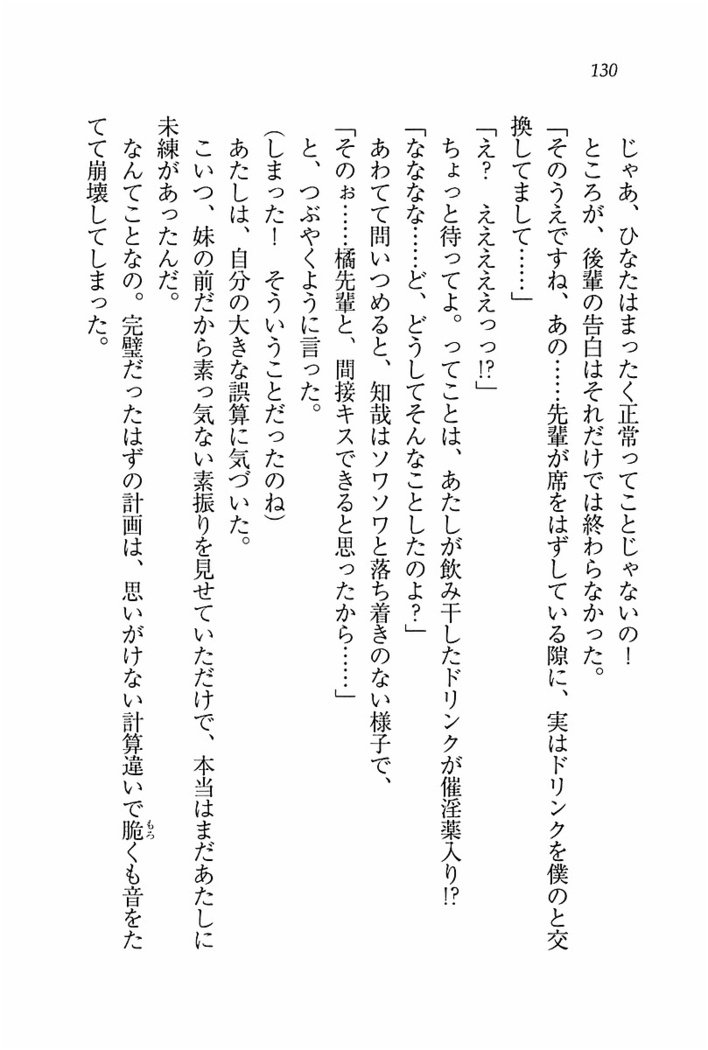 130
じゃあ、ひなたはまったく正常ってことじゃないの！
ところが、後輩の告白はそれだけでは終わらなかった。
「そのうえですね、あの……先輩が席をはずしている隙に、実はドリンクを僕のと交
換してまして……」
「え？　ええええええっっ!?」
ちょっと待ってよ。ってことは、あたしが飲み干したドリンクが催淫薬入り!?
「なななな……ど、どうしてそんなことしたのよ？」
あわてて問いつめると、知哉はソワソワと落ち着きのない様子で、
「そのぉ……橘先輩と、間接キスできると思ったから……」
と、つぶやくように言った。
(しまった！　そういうことだったのね)
あたしは、自分の大きな誤算に気づいた。
こいつ、妹の前だから素っ気ない素振りを見せていただけで、本当はまだあたしに
未練があったんだ。
なんてことなの。完璧だったはずの計画は、思いがけない計算違いで脆くも音をた
もろ
てて崩壊してしまった。